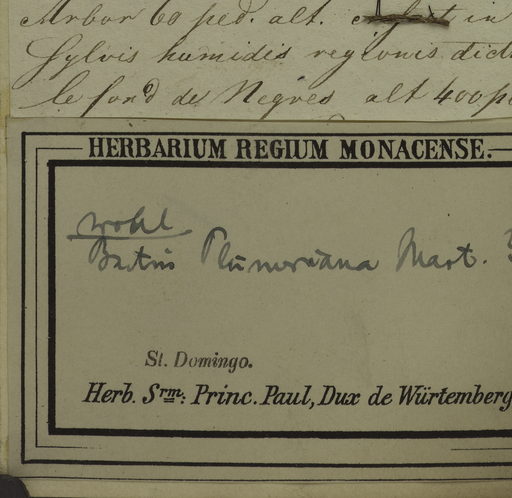 Arbor 60 ped. alt. in
Sylvis humidis regionis dict
le fond de Negres alt 400 p
HERBARIUM REGIUM MONACENSE.
wohl
Bactris Plumeriana Mart.
St. Domingo.
Herb. Srm: Princ. Paul, Dux de Würtemberg